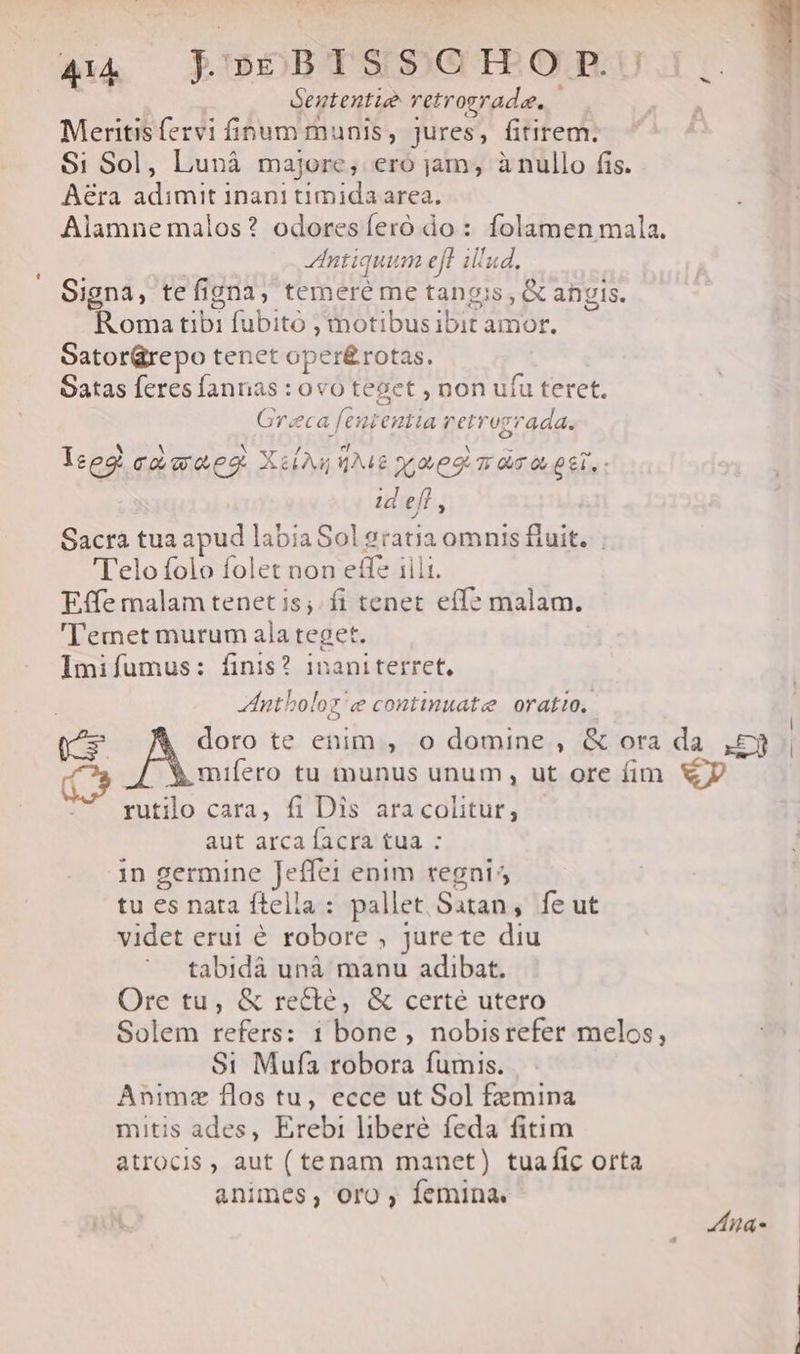 414 J. DE BISSCHOP.
Sententiæ retrogradæ.
Meritis ſervi ſinum munis, jures, ſitirem.
Si Sol, Lunâ majore, erò jam, à nullo ſis.
Aëra adimit inani timida area.
Alamne malos? odores ſerò do: ſolamen mala.
Antiquum eſt illud.
Signa, te ſigna, temerè me tangis, & angis.
Roma tibi ſubitò, motibus ibit amor.
Sator arepo tenet opera rotas.
Satas ſeres ſannas: ovo teget, non uſu teret.
Græca ſententia retrograda.
id eſt,
Sacra tua apud labia Sol gratia omnis fluit.
Telo ſolo ſolet non eſſe illi.
Eſſe malam tenet is; ſi tenet eſſe malam.
Temet murum ala teget.
Imi ſumus: finis? inani terret.
Anthologiæ continuatæ oratio.
Adoro te enim, o domine, & ora da
miſero tu munus unum, ut ore ſim
rutilo cara, ſi Dis ara colitur,
aut arca ſacra tua:
in germine Jeſſei enim regnis
tu es nata ſtella: pallet Satan, ſe ut
videt erui è robore, jure te diu
tabidâ unâ manu adibat.
Ore tu, & rectè, & certè utero
Solem refers: i bone, nobis refer melos,
Si Muſa robora ſumis.
Animæ flos tu, ecce ut Sol fæmina
mitis ades, Erebi liberè ſeda ſitim
atrocis, aut (tenam manet) tua ſic orta
animes, oro, ſemina.
Ana-